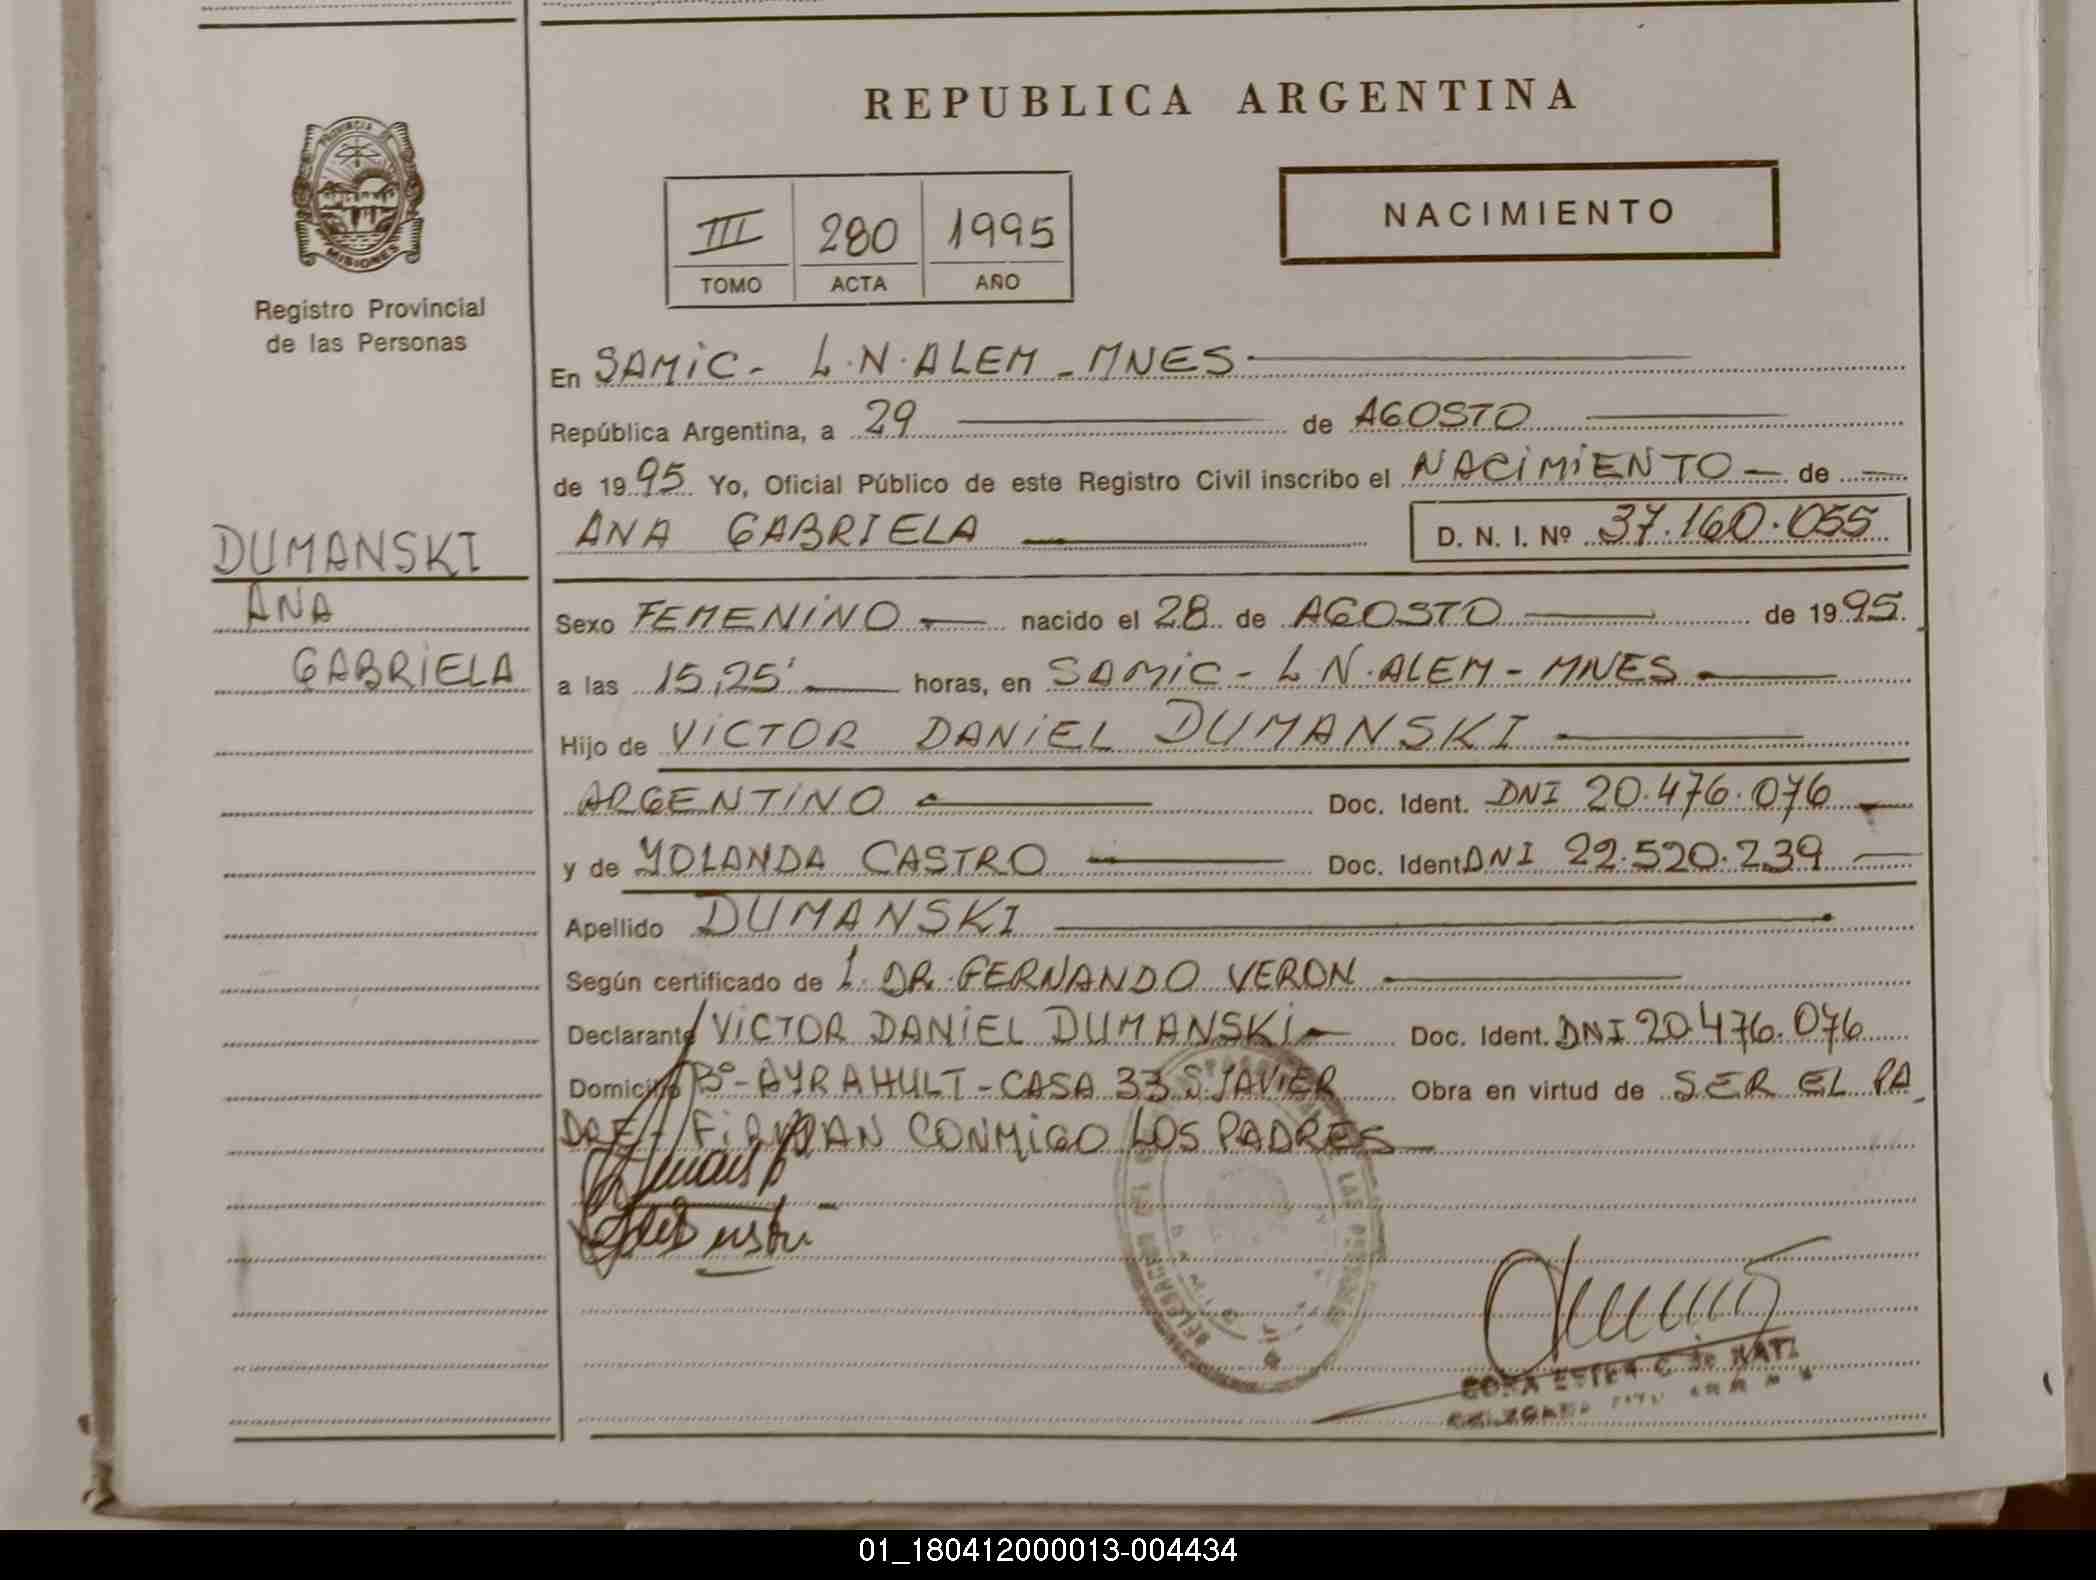 REPUBLICA ARGENTINA
PROVINCIA
MISIONES
Registro Provincial
de las Personas
III 280 1995
TOMO ACTA AÑO
NACIMIENTO
En SAMIC - L.N. ALEM - MNES
República Argentina, a 29 de AGOSTO
de 1995 Yo, Oficial Público de este Registro Civil inscribo el NACIMIENTO de
ANA GABRIELA D. N. I. Nº 37.160.055
DUMANSKI
ANA
GABRIELA
Sexo FEMENINO nacido el 28 de AGOSTO de 1995.
a las 15,25' horas, en SAMIC - L.N. ALEM - MNES
Hijo de VICTOR DANIEL DUMANSKI
ARGENTINO Doc. Ident. DNI 20.476.076
y de YOLANDA CASTRO Doc. Ident. DNI 22.520.239
Apellido DUMANSKI
Según certificado de L. DR. FERNANDO VERON
Declarante VICTOR DANIEL DUMANSKI Doc. Ident. DNI 20.476.076
Domicilio Bº - AYRAHULT - CASA 33 S. JAVIER Obra en virtud de SER EL PA
DRE - FIRMAN CONMIGO LOS PADRES
01_180412000013-004434